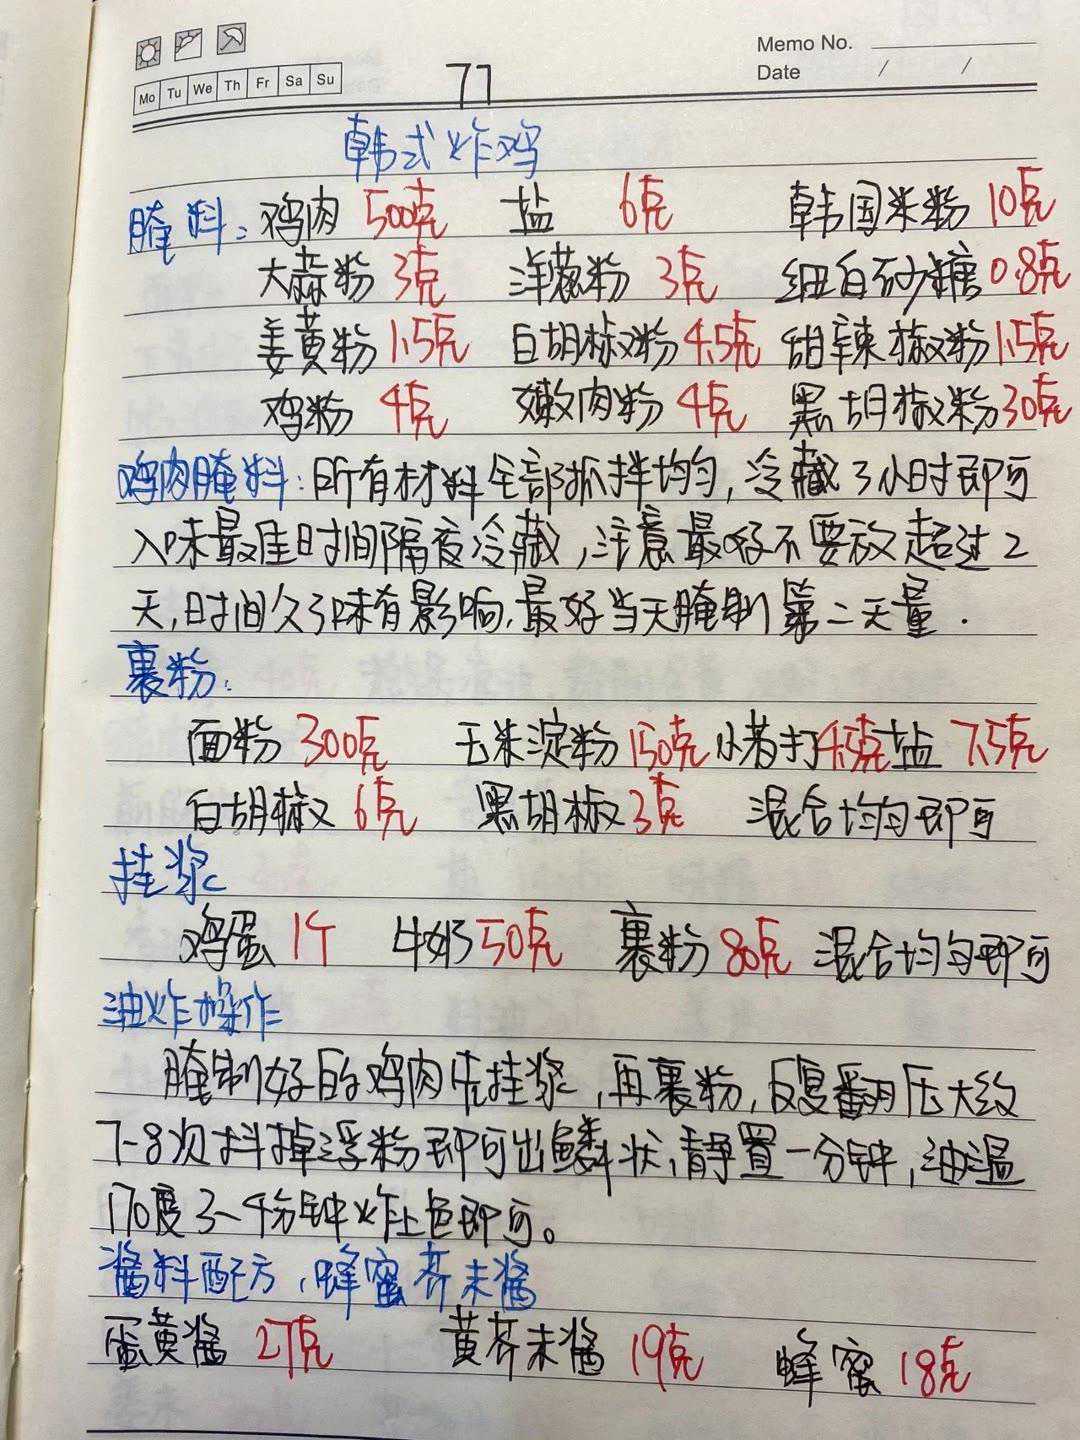 Memo No.
Mo Tu We Th Fr Sa Su
Date / /
77
韩式炸鸡
腌料：鸡肉 500克 盐 6克 韩国米粉 10克
大蒜粉 3克 洋葱粉 3克 细白砂糖 0.8克
姜黄粉 1.5克 白胡椒粉 4.5克 甜辣椒粉 1.5克
鸡粉 4克 嫩肉粉 4克 黑胡椒粉 30克
鸡肉腌料：所有材料全部抓拌均匀，冷藏3小时即可
入味最佳时间隔夜冷藏，注意最好不要放超过2
天，时间久了味有影响，最好当天腌制第二天量．
裹粉：
面粉 300克 玉米淀粉 150克 小苏打 4.5克 盐 7.5克
白胡椒 6克 黑胡椒 3克 混合均匀即可
挂浆
鸡蛋 1个 牛奶 50克 裹粉 80克 混合均匀即可
油炸操作
腌制好的鸡肉先挂浆，再裹粉，反复翻压大约
7-8次抖掉浮粉即可出鳞状，静置一分钟，油温
170度3-4分钟炸上色即可。
酱料配方，蜂蜜芥末酱
蛋黄酱 27克 黄芥末酱 19克 蜂蜜 18克